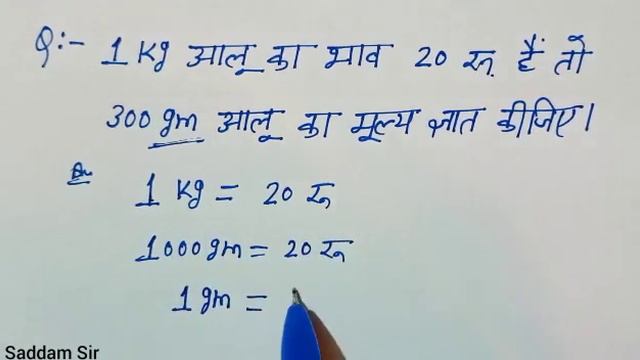 Q:- 1 Kg आलू का भाव 20 रू हैं तो
300 gm आलू का मूल्य ज्ञात कीजिए।
1 Kg = 20 रू
1000 gm = 20 रू
1 gm =
Saddam Sir